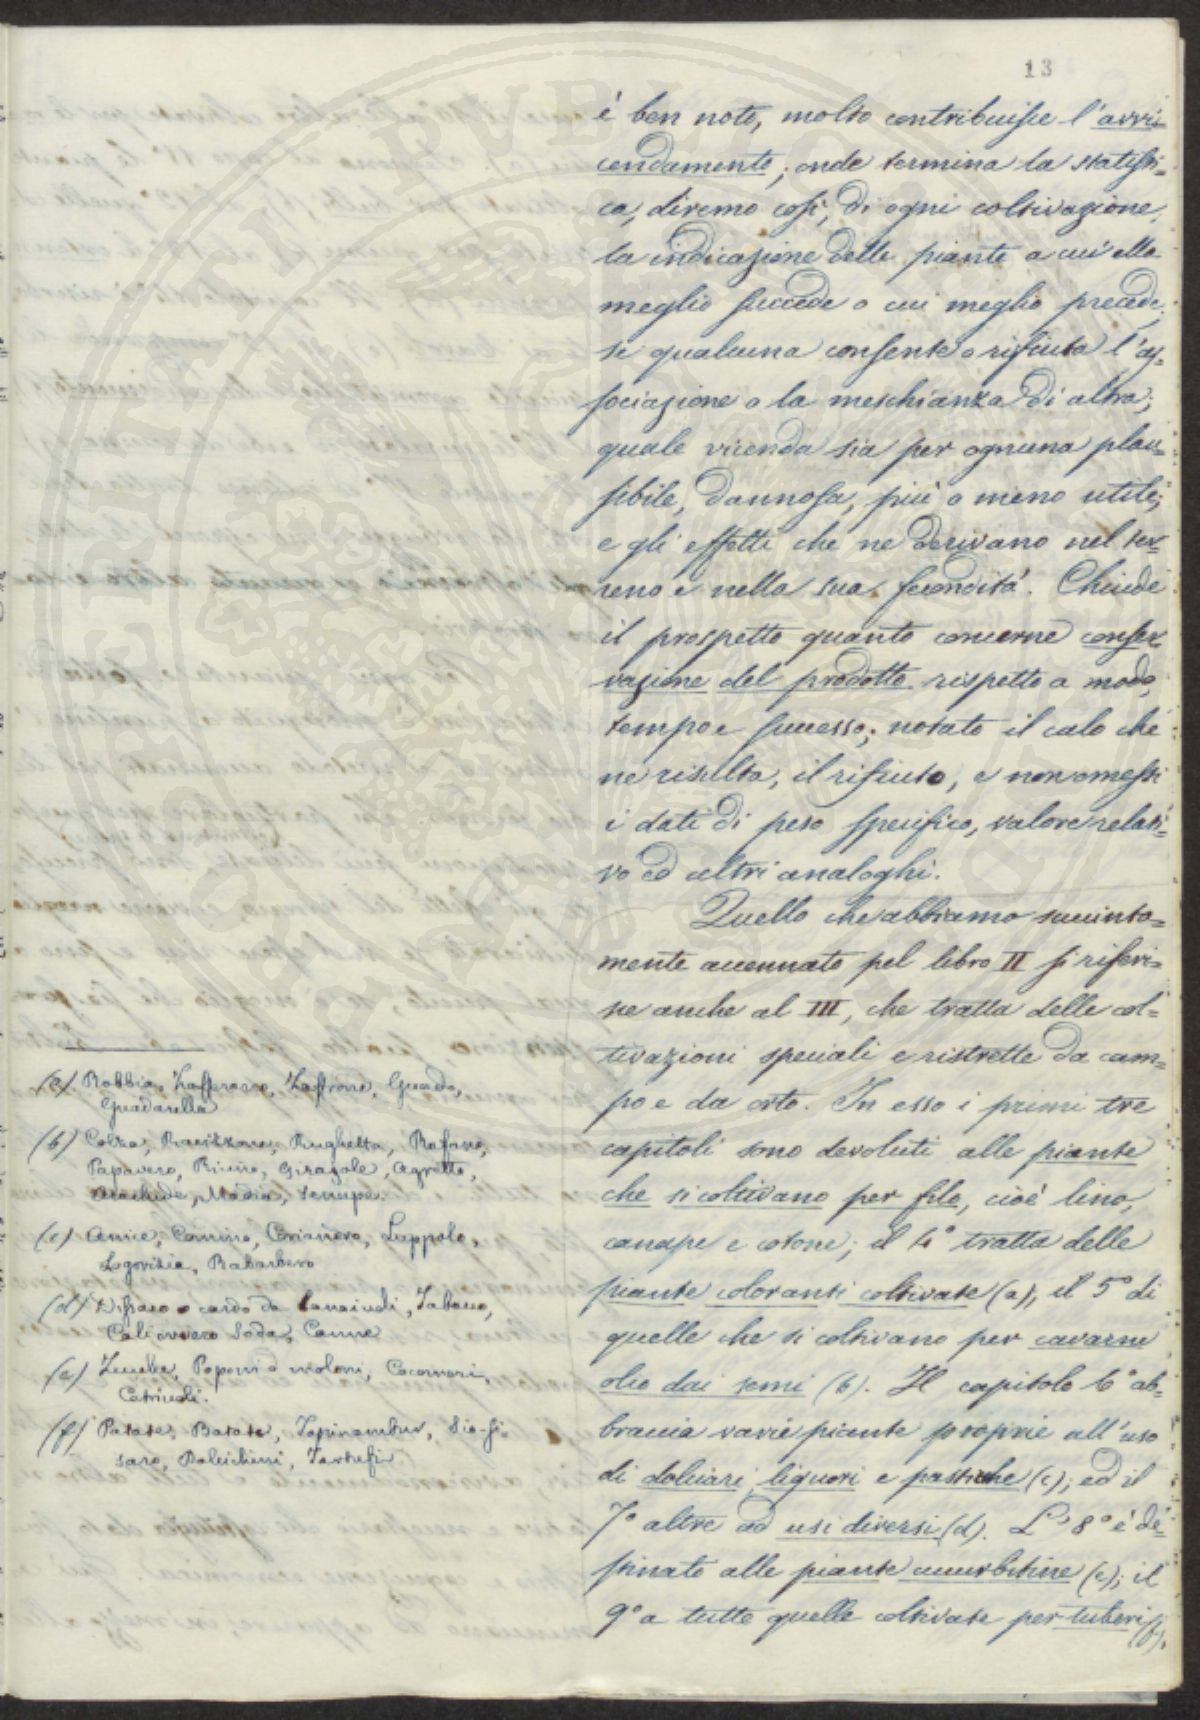 13
è ben noto, molto contribuisce l'avvi-
cendamento; onde termina la statisti-
ca, diremo così, di ogni coltivazione,
la indicazione delle piante a cui ella
meglio succede o cui meglio precede;
se qualcuna consente o rifiuta l'as-
sociazione o la meschianza di altra;
quale vicenda sia per ognuna plau-
sibile, dannosa, più o meno utile;
e gli effetti che ne derivano nel ter-
reno e nella sua fecondità. Chiude
il prospetto quanto concerne conser-
vazione del prodotto rispetto a modo,
tempo e successo; notato il calo che
ne risulta, il rifiuto, e non omessi
i dati di peso specifico, valore relati-
vo ed altri analoghi.
Quello che abbiamo succinta-
mente accennato pel libro II si riferi-
sce anche al III, che tratta delle col-
tivazioni speciali e ristrette da cam-
po e da orto. In esso i primi tre
capitoli sono devoluti alle piante
che si coltivano per filo, cioè lino,
canape e cotone; il 4° tratta delle
piante coloranti coltivate (a), il 5° di
quelle che si coltivano per cavarne
olio dai semi (b). Il capitolo 6° ab-
braccia varie piante proprie all'uso
di dolciari, liquori e pasticche (c); ed il
7° altre ad usi diversi (d). L'8° è de-
stinato alle piante cucurbitine (e); il
9° a tutte quelle coltivate per tuberi (f).
(a) Robbia, Zafferano, Zaffrone, Guado,
Guadarella
(b) Colza, Ravizzone, Rughetta, Rafano,
Papavero, Ricino, Girasole, Agretto,
Arachide, Madia, Senape.
(c) Anice, Comino, Coriandro, Luppolo,
Legorizia, Rabarbero
(d) Dissaco o cardo da lanaiuoli, Tabacco,
Cali ovvero Soda, Canne
(e) Zucche, Poponi o meloni, Cocomeri,
Cetriuoli.
(f) Patate, Batate, Topinambur, Sio-si-
saro, Tartufi